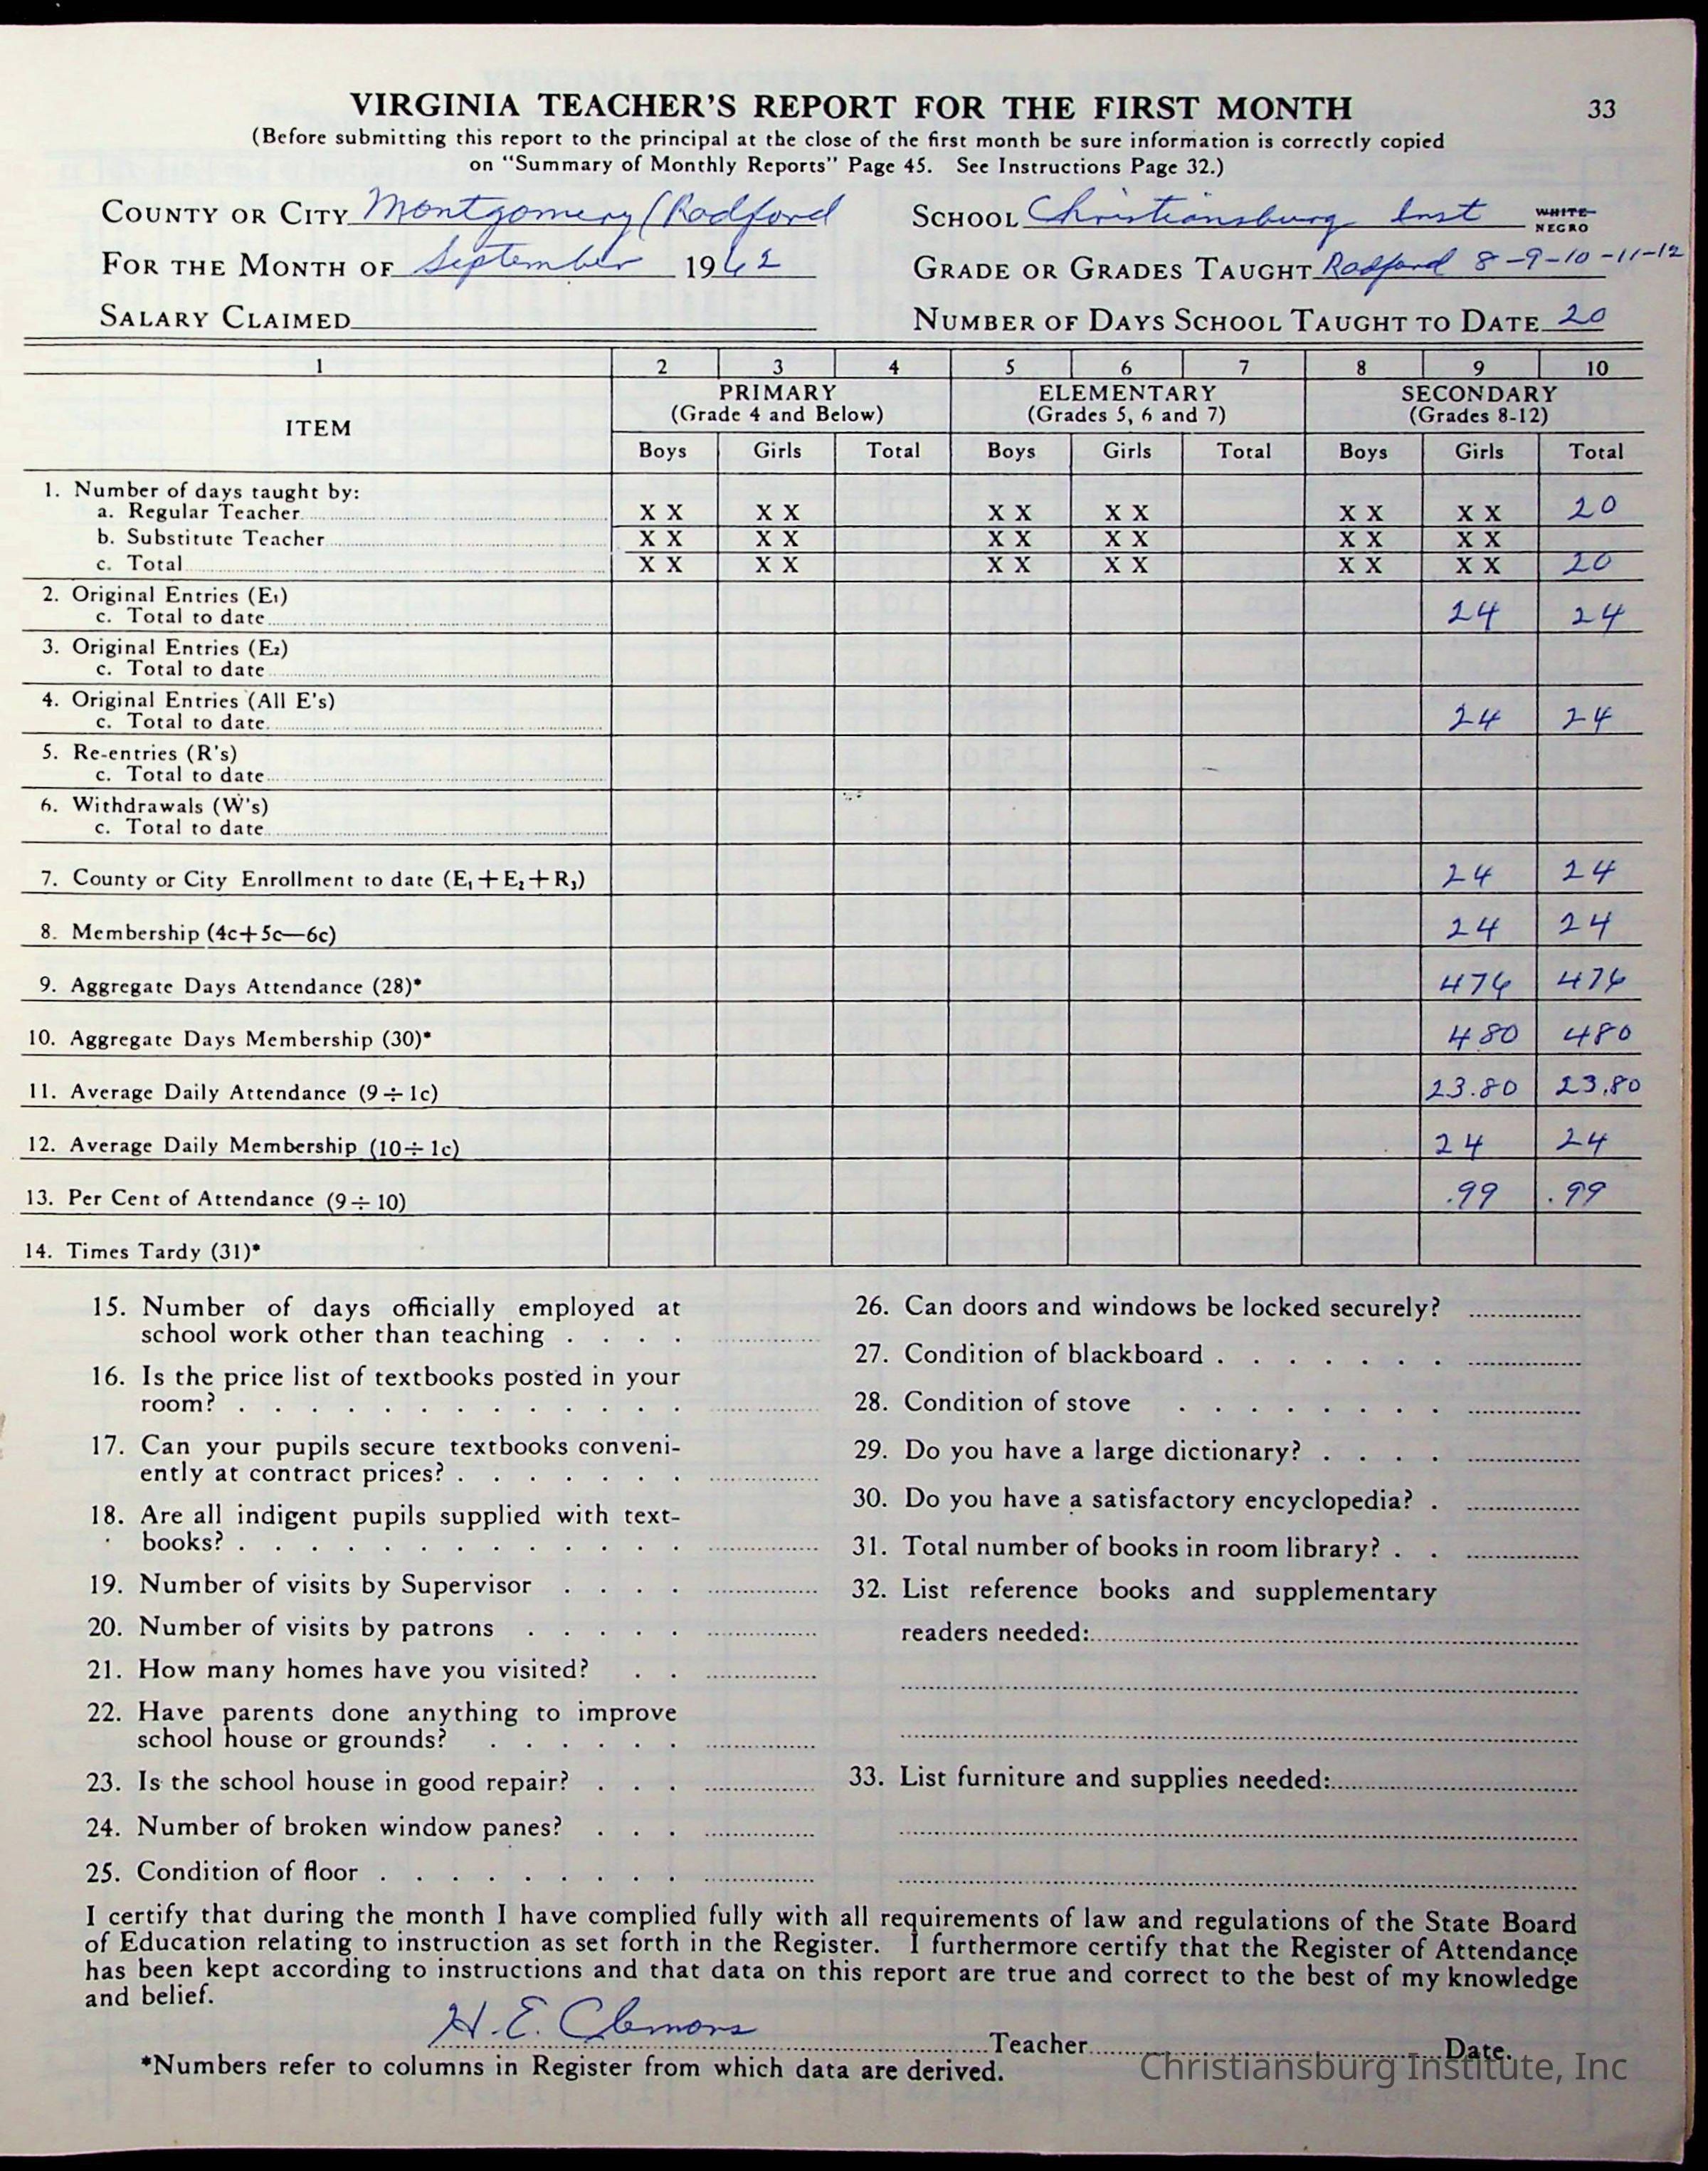 VIRGINIA TEACHER'S REPORT FOR THE FIRST MONTH 33
(Before submitting this report to the principal at the close of the first month be sure information is correctly copied
on "Summary of Monthly Reports" Page 45. See Instructions Page 32.)
COUNTY OR CITY Montgomery/Radford SCHOOL Christiansburg Inst WHITE NEGRO
FOR THE MONTH OF September 1962 GRADE OR GRADES TAUGHT Radford 8-9-10-11-12
SALARY CLAIMED NUMBER OF DAYS SCHOOL TAUGHT TO DATE 20
1 2 3 4 5 6 7 8 9 10
ITEM PRIMARY ELEMENTARY SECONDARY
(Grade 4 and Below) (Grades 5, 6 and 7) (Grades 8-12)
Boys Girls Total Boys Girls Total Boys Girls Total
1. Number of days taught by:
a. Regular Teacher X X X X X X X X X X X X 20
b. Substitute Teacher X X X X X X X X X X X X
c. Total X X X X X X X X X X X X 20
2. Original Entries (E1)
c. Total to date 24 24
3. Original Entries (E2)
c. Total to date
4. Original Entries (All E's)
c. Total to date 24 24
5. Re-entries (R's)
c. Total to date
6. Withdrawals (W's)
c. Total to date
7. County or City Enrollment to date (E1+E2+R3) 24 24
8. Membership (4c+5c—6c) 24 24
9. Aggregate Days Attendance (28)* 476 476
10. Aggregate Days Membership (30)* 480 480
11. Average Daily Attendance (9÷1c) 23.80 23.80
12. Average Daily Membership (10÷1c) 24 24
13. Per Cent of Attendance (9÷10) .99 .99
14. Times Tardy (31)*
15. Number of days officially employed at
school work other than teaching . . . .
16. Is the price list of textbooks posted in your
room? . . . . . . . . . . . . .
17. Can your pupils secure textbooks conveni-
ently at contract prices? . . . . . . .
18. Are all indigent pupils supplied with text-
books? . . . . . . . . . . . . .
19. Number of visits by Supervisor . . . .
20. Number of visits by patrons . . . . .
21. How many homes have you visited? . .
22. Have parents done anything to improve
school house or grounds? . . . . . .
23. Is the school house in good repair? . . .
24. Number of broken window panes? . . .
25. Condition of floor . . . . . . . . .
26. Can doors and windows be locked securely?
27. Condition of blackboard . . . . . . .
28. Condition of stove . . . . . . . .
29. Do you have a large dictionary? . . . .
30. Do you have a satisfactory encyclopedia? .
31. Total number of books in room library? . .
32. List reference books and supplementary
readers needed:
33. List furniture and supplies needed:
I certify that during the month I have complied fully with all requirements of law and regulations of the State Board
of Education relating to instruction as set forth in the Register. I furthermore certify that the Register of Attendance
has been kept according to instructions and that data on this report are true and correct to the best of my knowledge
and belief.
H. E. Clemons Teacher Date
*Numbers refer to columns in Register from which data are derived.
Christiansburg Institute, Inc